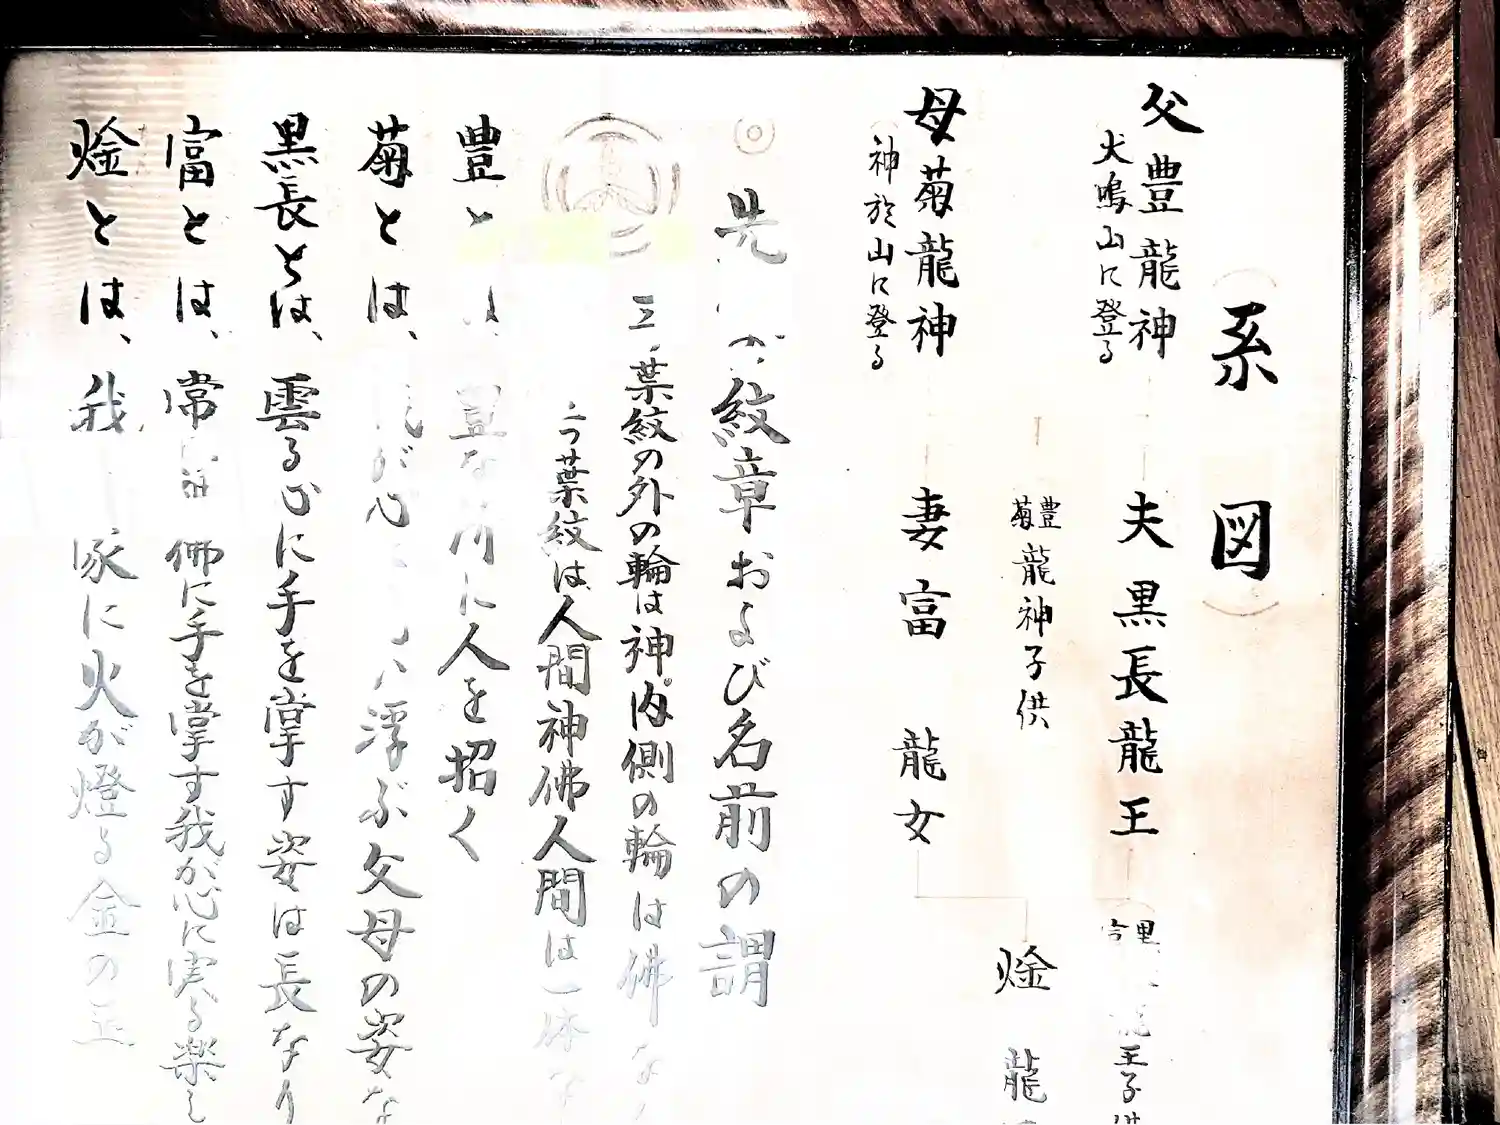 系図
父豊龍神
火鳴山に登る
夫黒長龍王
龍王子供
豊菊龍神子供
燈龍
母菊龍神
神於山に登る
妻富龍女
先 が紋章および名前の謂
三ッ葉紋の外の輪は神。内側の輪は佛な
二つ葉紋は、人間神佛人間は一体な
豊とは 豊な所に人を招く
菊とは、我が心 浮ぶ父母の姿な
黒長とは、雲る心に手を掌す姿は長なり
富とは、常 佛に手を掌す我が心に実る楽し
燈とは、我 家に火が燈る金の玉